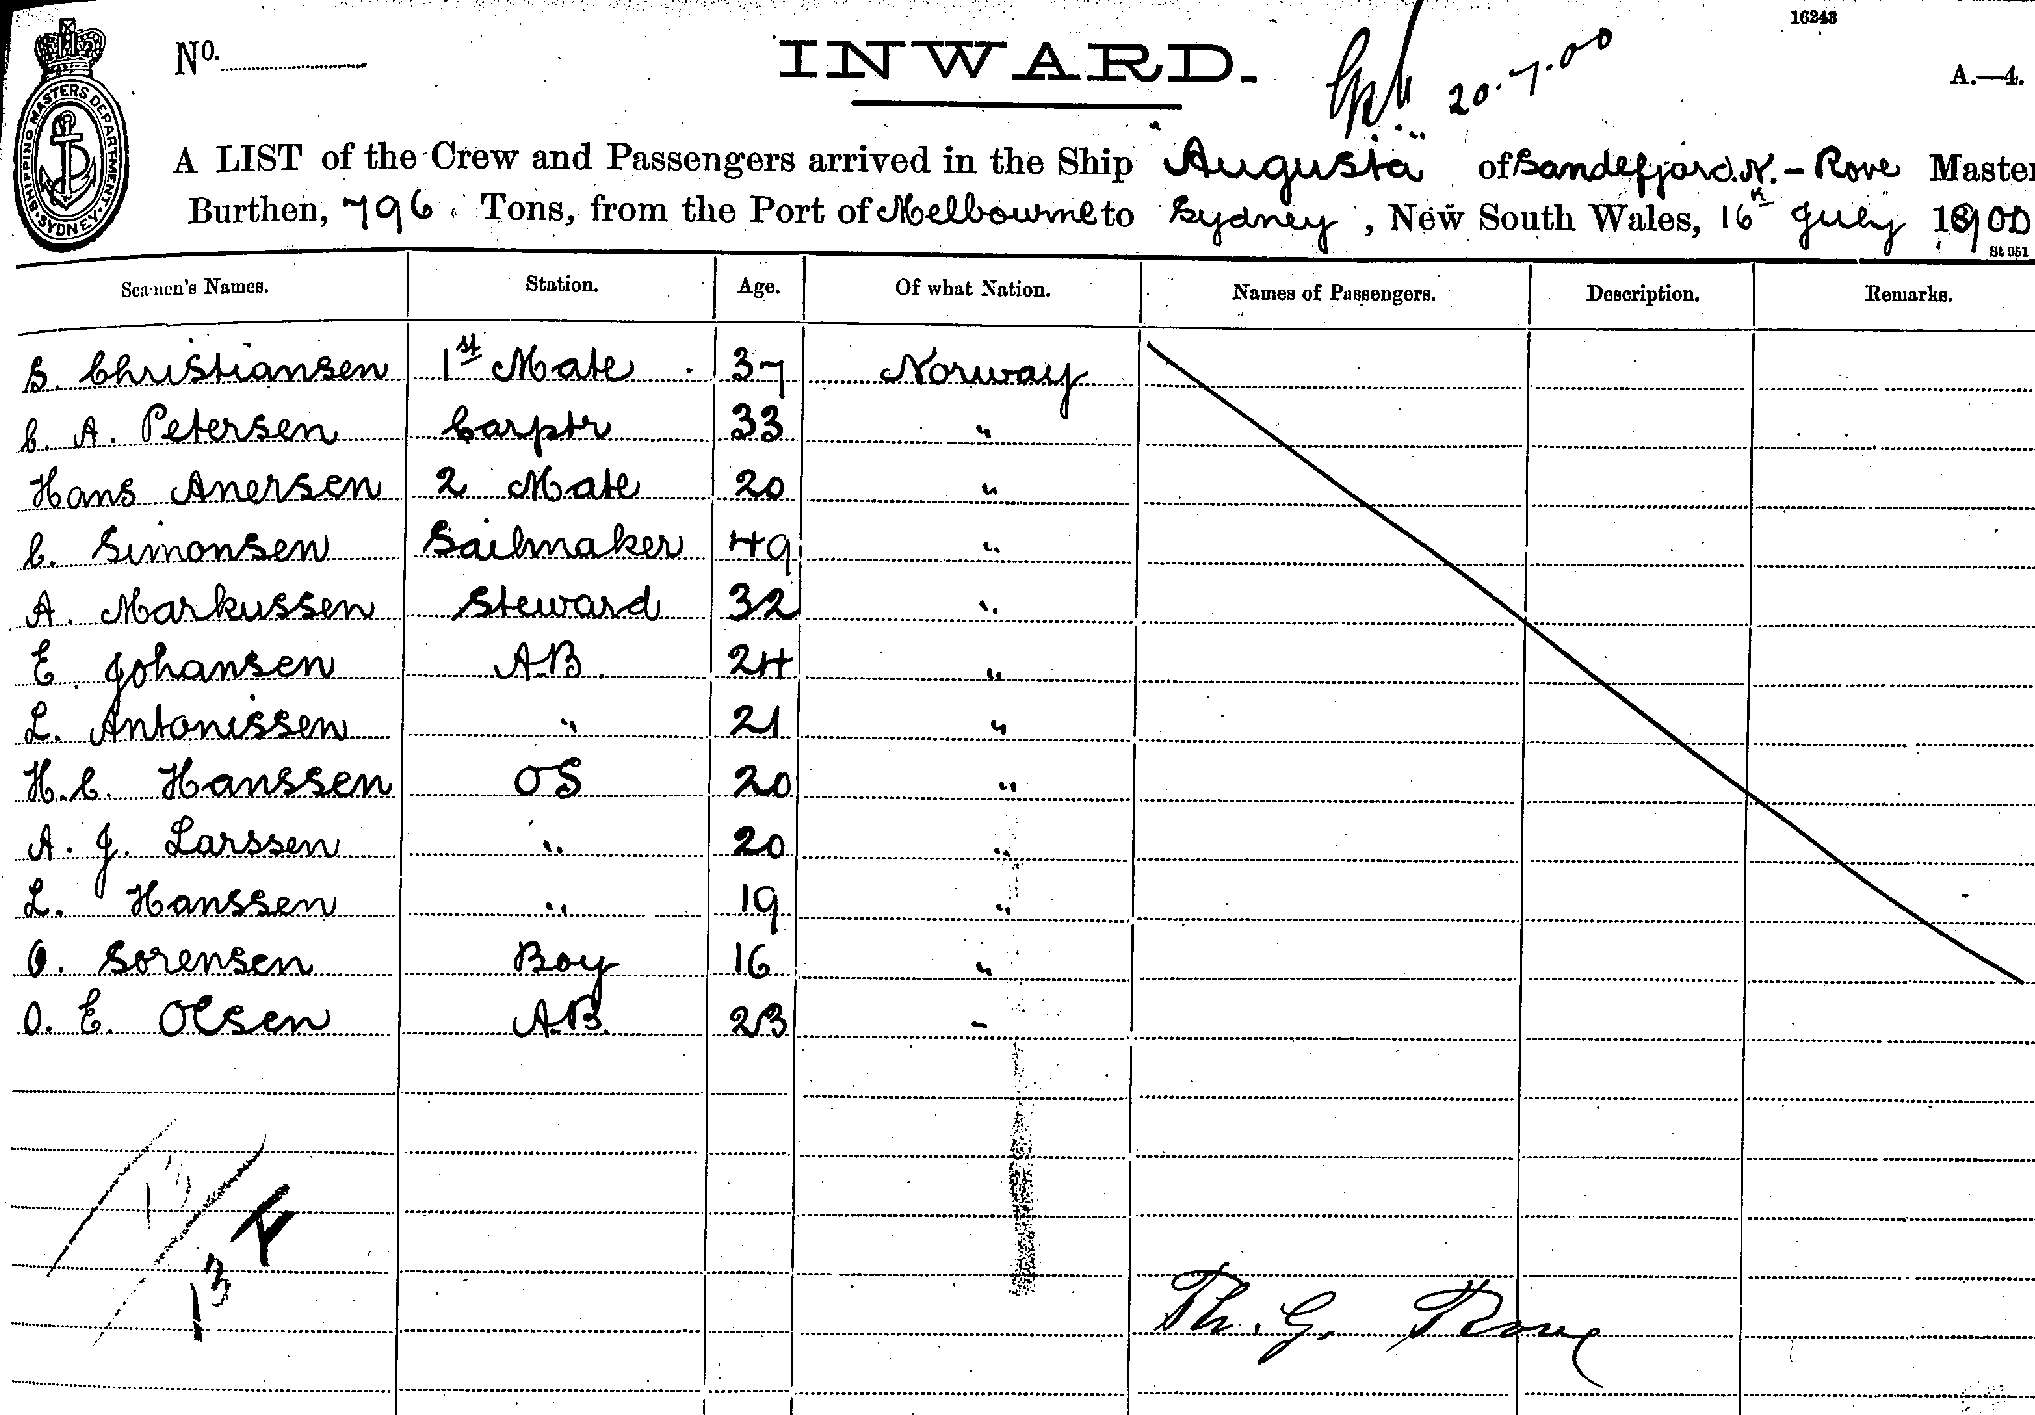 16243
No.
INWARD.
20.7.00
A.—4.
SHIPPING MASTERS DEPARTMENT SYDNEY
A LIST of the Crew and Passengers arrived in the Ship "Augusta" of Sandefjord. N. - Rove Master
Burthen, 796 Tons, from the Port of Melbourne to Sydney, New South Wales, 16th July 1900
St 951
Seamen's Names. Station. Age. Of what Nation. Names of Passengers. Description. Remarks.
S. Christiansen 1st Mate 37 Norway
C. A. Petersen Carptr 33 "
Hans Anersen 2 Mate 20 "
C. Simonsen Sailmaker 49 "
A. Markussen Steward 32 "
E. Johansen A.B. 24 "
L. Antonissen " 21 "
H. C. Hanssen OS 20 "
A. J. Larssen " 20 "
L. Hanssen " 19 "
O. Sorensen Boy 16 "
O. E. Olsen A.B. 23 "
13
13
Th. G. Rove